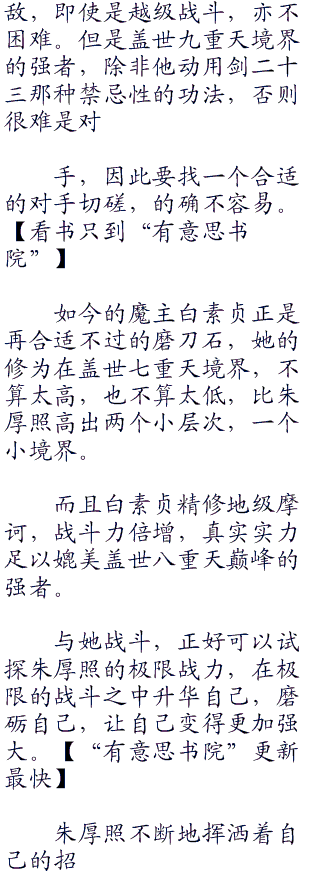 敌，即使是越级战斗，亦不
困难。但是盖世九重天境界
的强者，除非他动用剑二十
三那种禁忌性的功法，否则
很难是对
手，因此要找一个合适
的对手切磋，的确不容易。
【看书只到“有意思书
院”】
如今的魔主白素贞正是
再合适不过的磨刀石，她的
修为在盖世七重天境界，不
算太高，也不算太低，比朱
厚照高出两个小层次，一个
小境界。
而且白素贞精修地级摩
诃，战斗力倍增，真实实力
足以媲美盖世八重天巅峰的
强者。
与她战斗，正好可以试
探朱厚照的极限战力，在极
限的战斗之中升华自己，磨
砺自己，让自己变得更加强
大。【“有意思书院”更新
最快】
朱厚照不断地挥洒着自
己的招